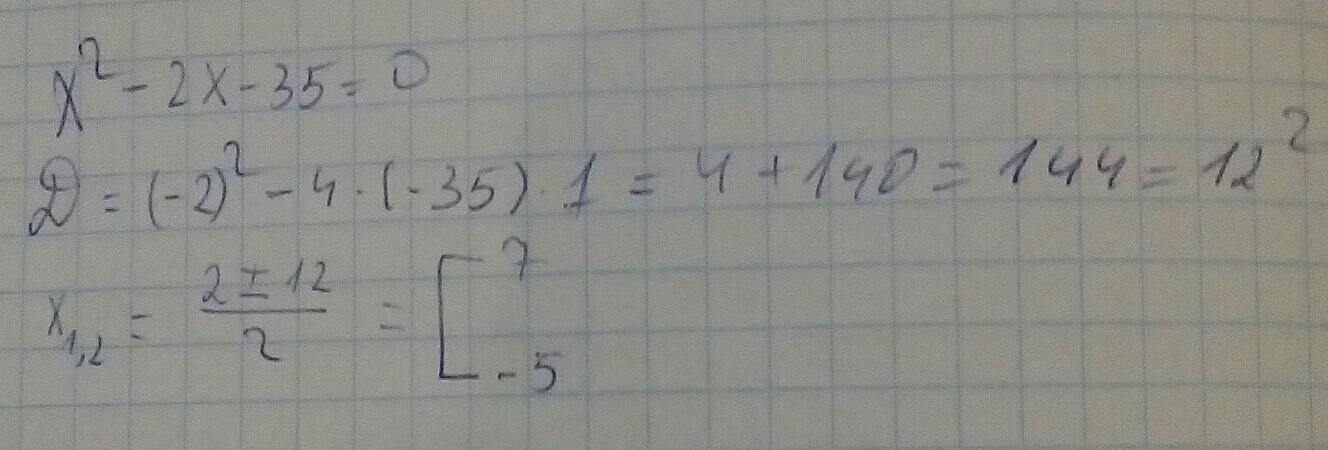 x² - 2x - 35 = 0
D = (-2)² - 4 · (-35) · 1 = 4 + 140 = 144 = 12²
x₁,₂ = (2 ± 12)/2 = [ 7
-5